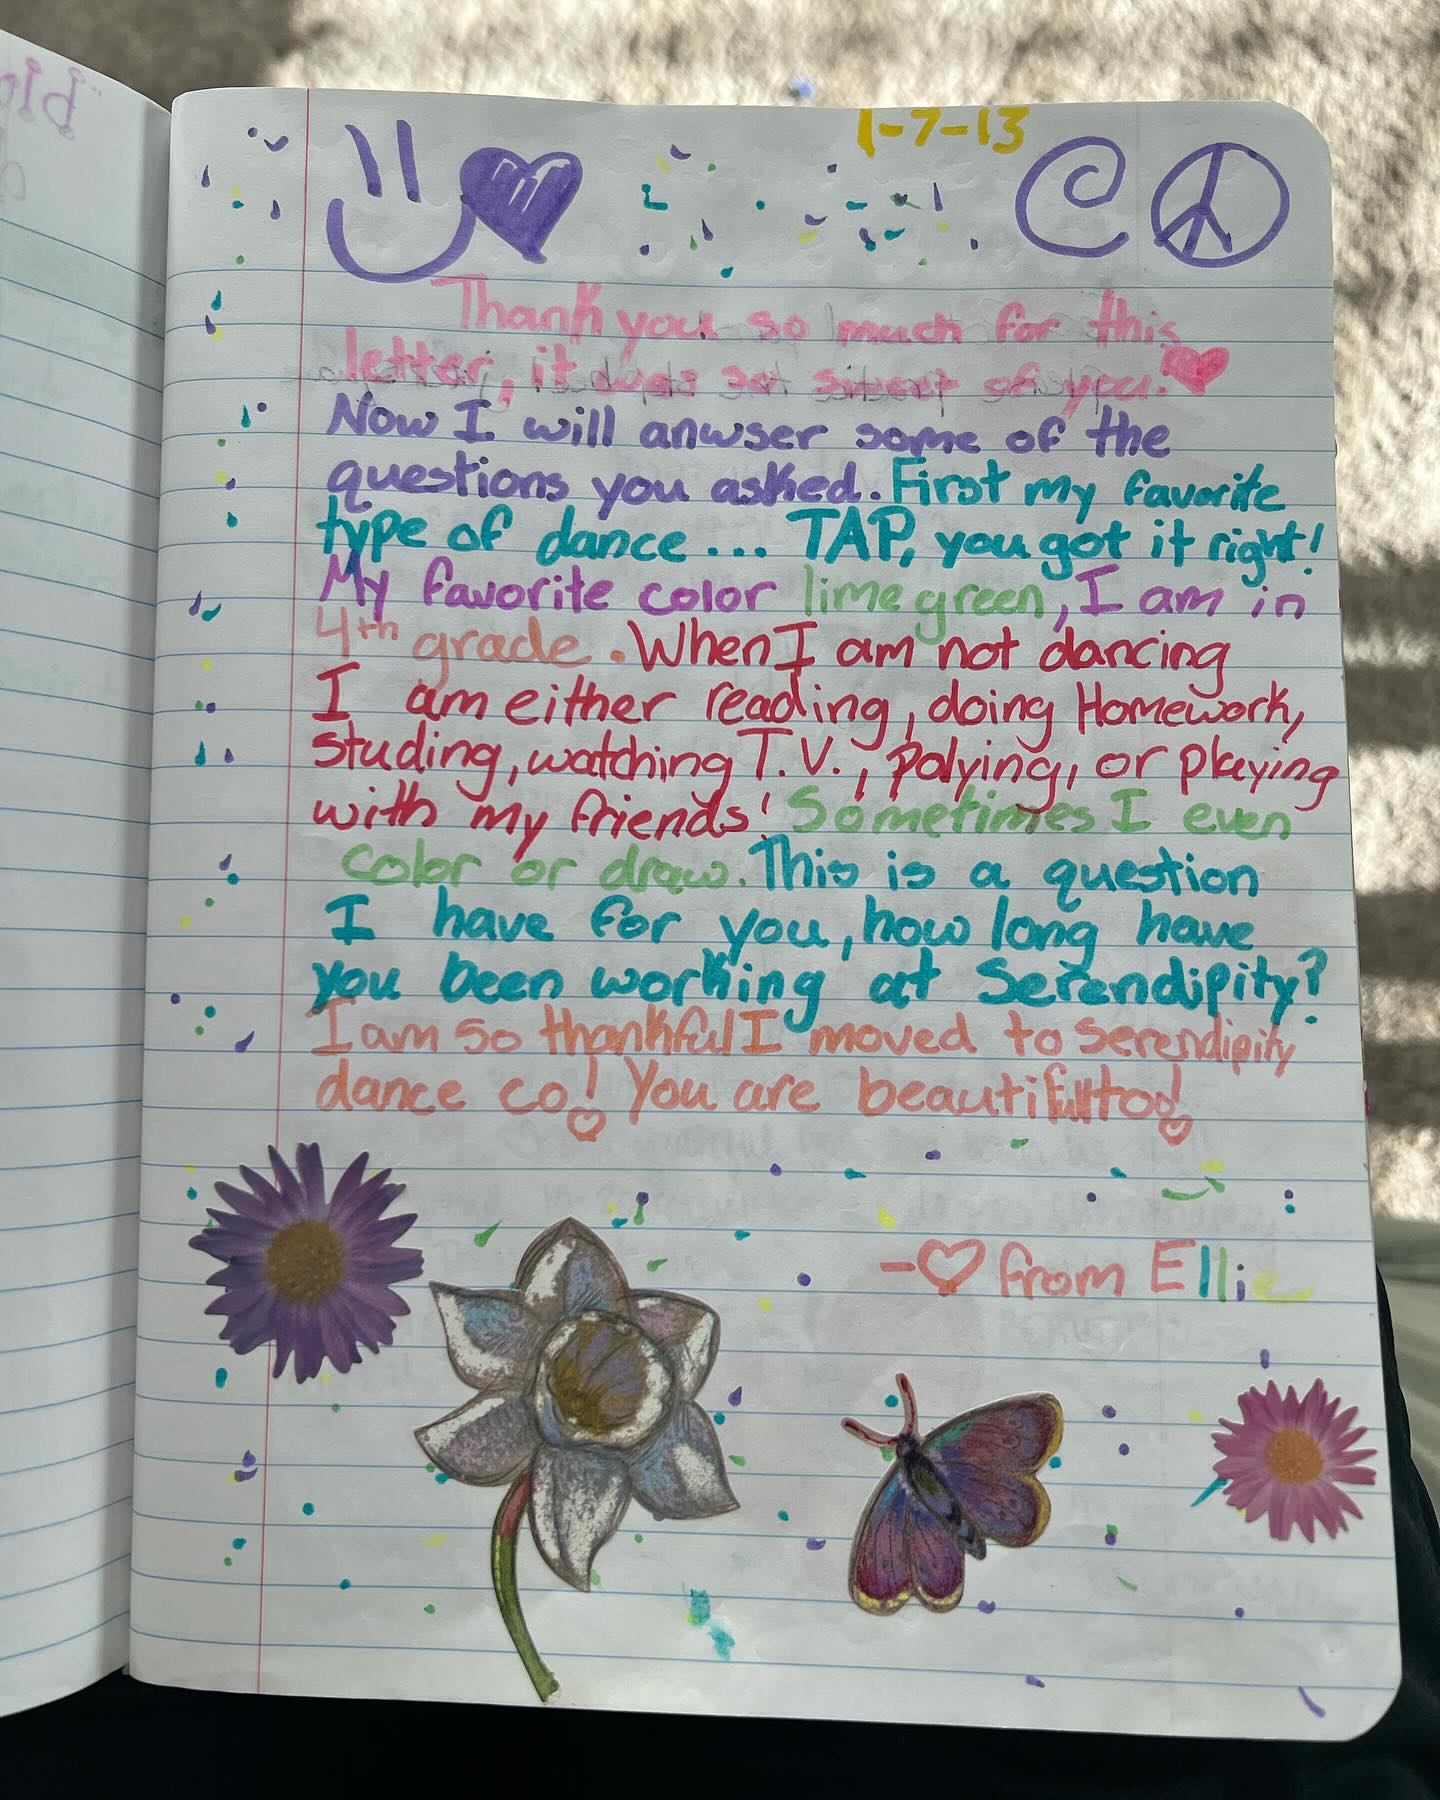 1-7-13
Thank you so much for this
letter, it was so sweet of you!
Now I will anwser some of the
questions you asked. First my favorite
type of dance... TAP, you got it right!
My favorite color lime green, I am in
4th grade. When I am not dancing
I am either reading, doing Homework,
studing, watching T.V., polying, or playing
with my friends! Sometimes I even
color or draw. This is a question
I have for you, how long have
you been working at Serendipity?
I am so thankful I moved to Serendipity
dance co! You are beautifull too!
- from Ellie